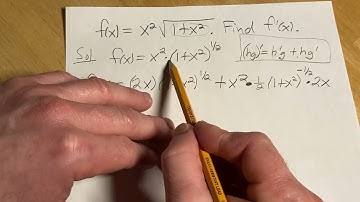 f(x) = x² √(1+x²). Find f'(x).
Sol f(x) = x² · (1+x²)^1/2 (hg)' = h'g + hg'
= (2x)( x²)^1/2 + x² · 1/2 (1+x²)^-1/2 · 2x